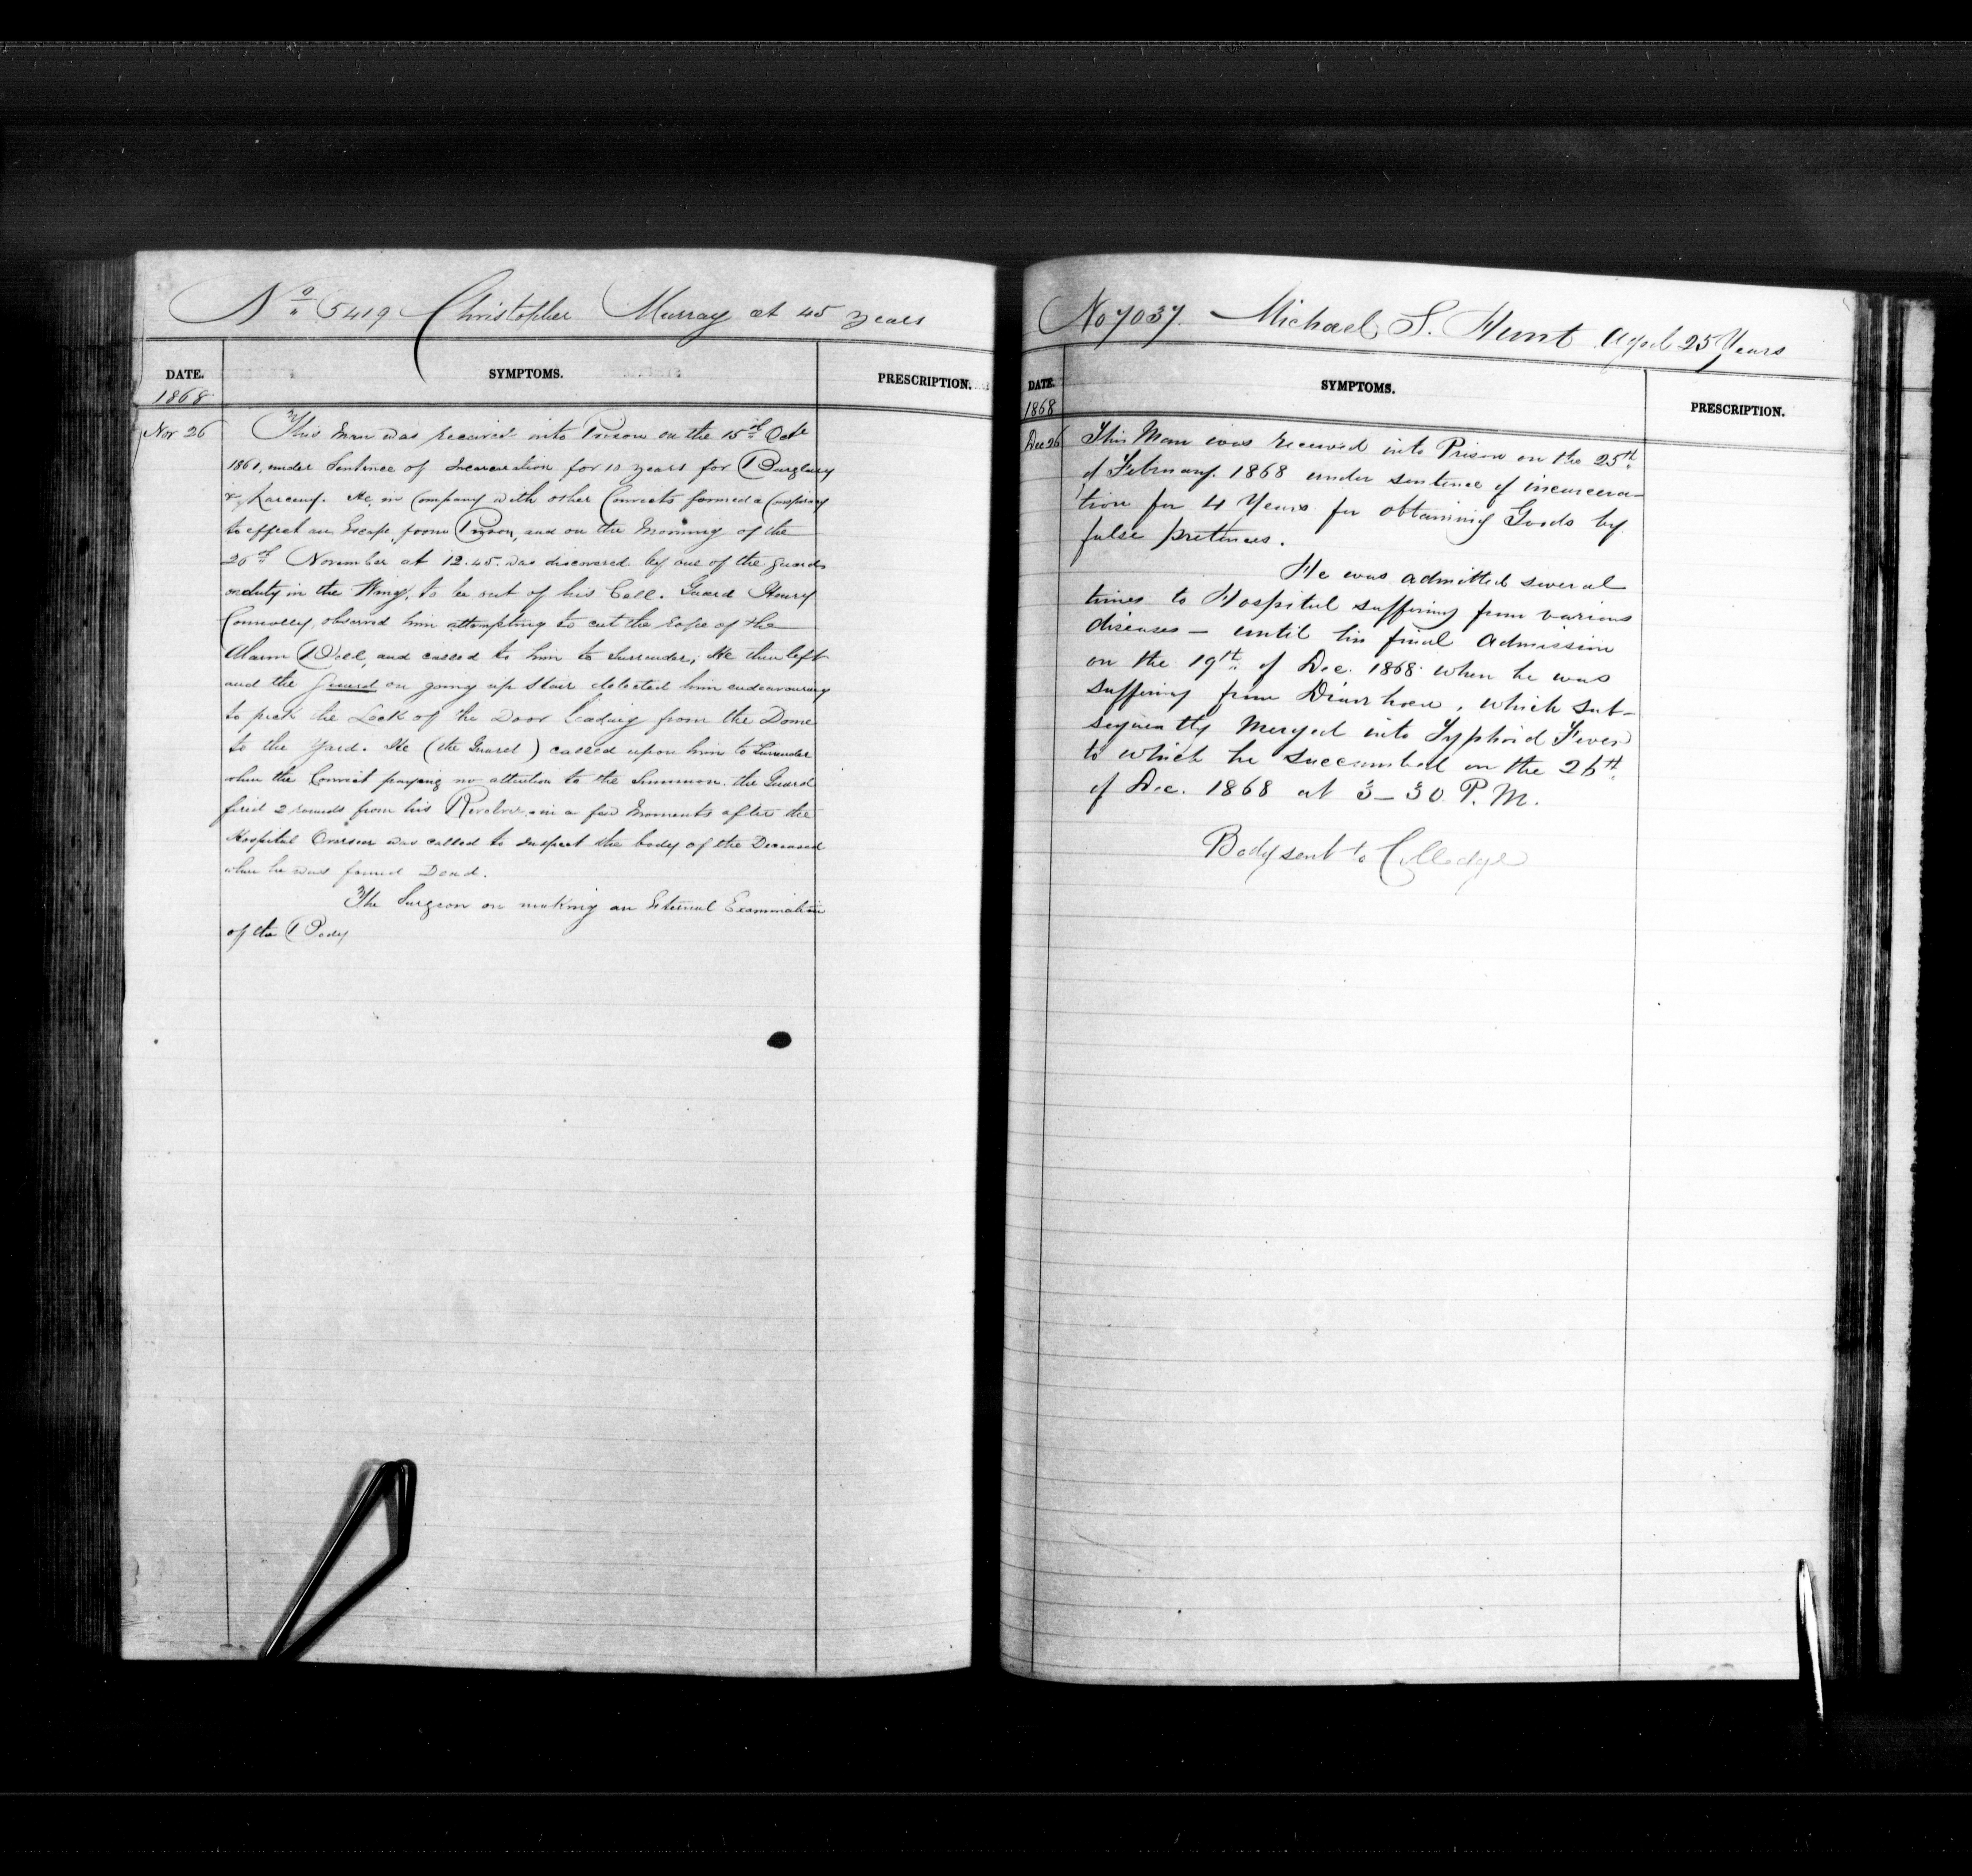 No 5419 Christopher Murray at 45 years
DATE. SYMPTOMS. PRESCRIPTION.
1868
Nov 26 This Man was received into Prison on the 15th Octr
1861, under Sentence of Incarceration for 10 years for Burglary
& Larceny. He in Company with other Convicts formed a Conspiracy
to effect an Escape from Prison, and on the Morning of the
26th November at 12.45. was discovered by one of the guards
on duty in the Wing, to be out of his Cell. Guard Henry
Connolly, observed him attempting to cut the Rope of the
Alarm Bell, and called to him to Surrender, He then left
and the Guard on going up Stair detected him endeavouring
to pick the Lock of the Door leading from the Dome
to the Yard. He (the Guard) called upon him to Surrender
when the Convict paying no attention to the Summon. the Guard
fired 2 rounds from his Revolver. in a few Moments after the
Hospital Overseer was called to inspect the body of the Deceased
when he was found Dead.
The Surgeon on making an External Examination
of the Body
No 7037. Michael S. Hunt Aged 25 Years
DATE. SYMPTOMS. PRESCRIPTION.
1868
Dec 26 This Man was received into Prison on the 25th
of February. 1868 under sentence of incarcera-
tion for 4 Years for obtaining Goods by
false pretences.
He was admitted several
times to Hospital suffering from various
diseases – until his final admission
on the 19th of Dec. 1868 when he was
suffering from Diarrhoea, which sub-
sequently merged into Typhoid Fever
to which he succumbed on the 26th
of Dec. 1868 at 3–30 P.M.
Body sent to Colledge